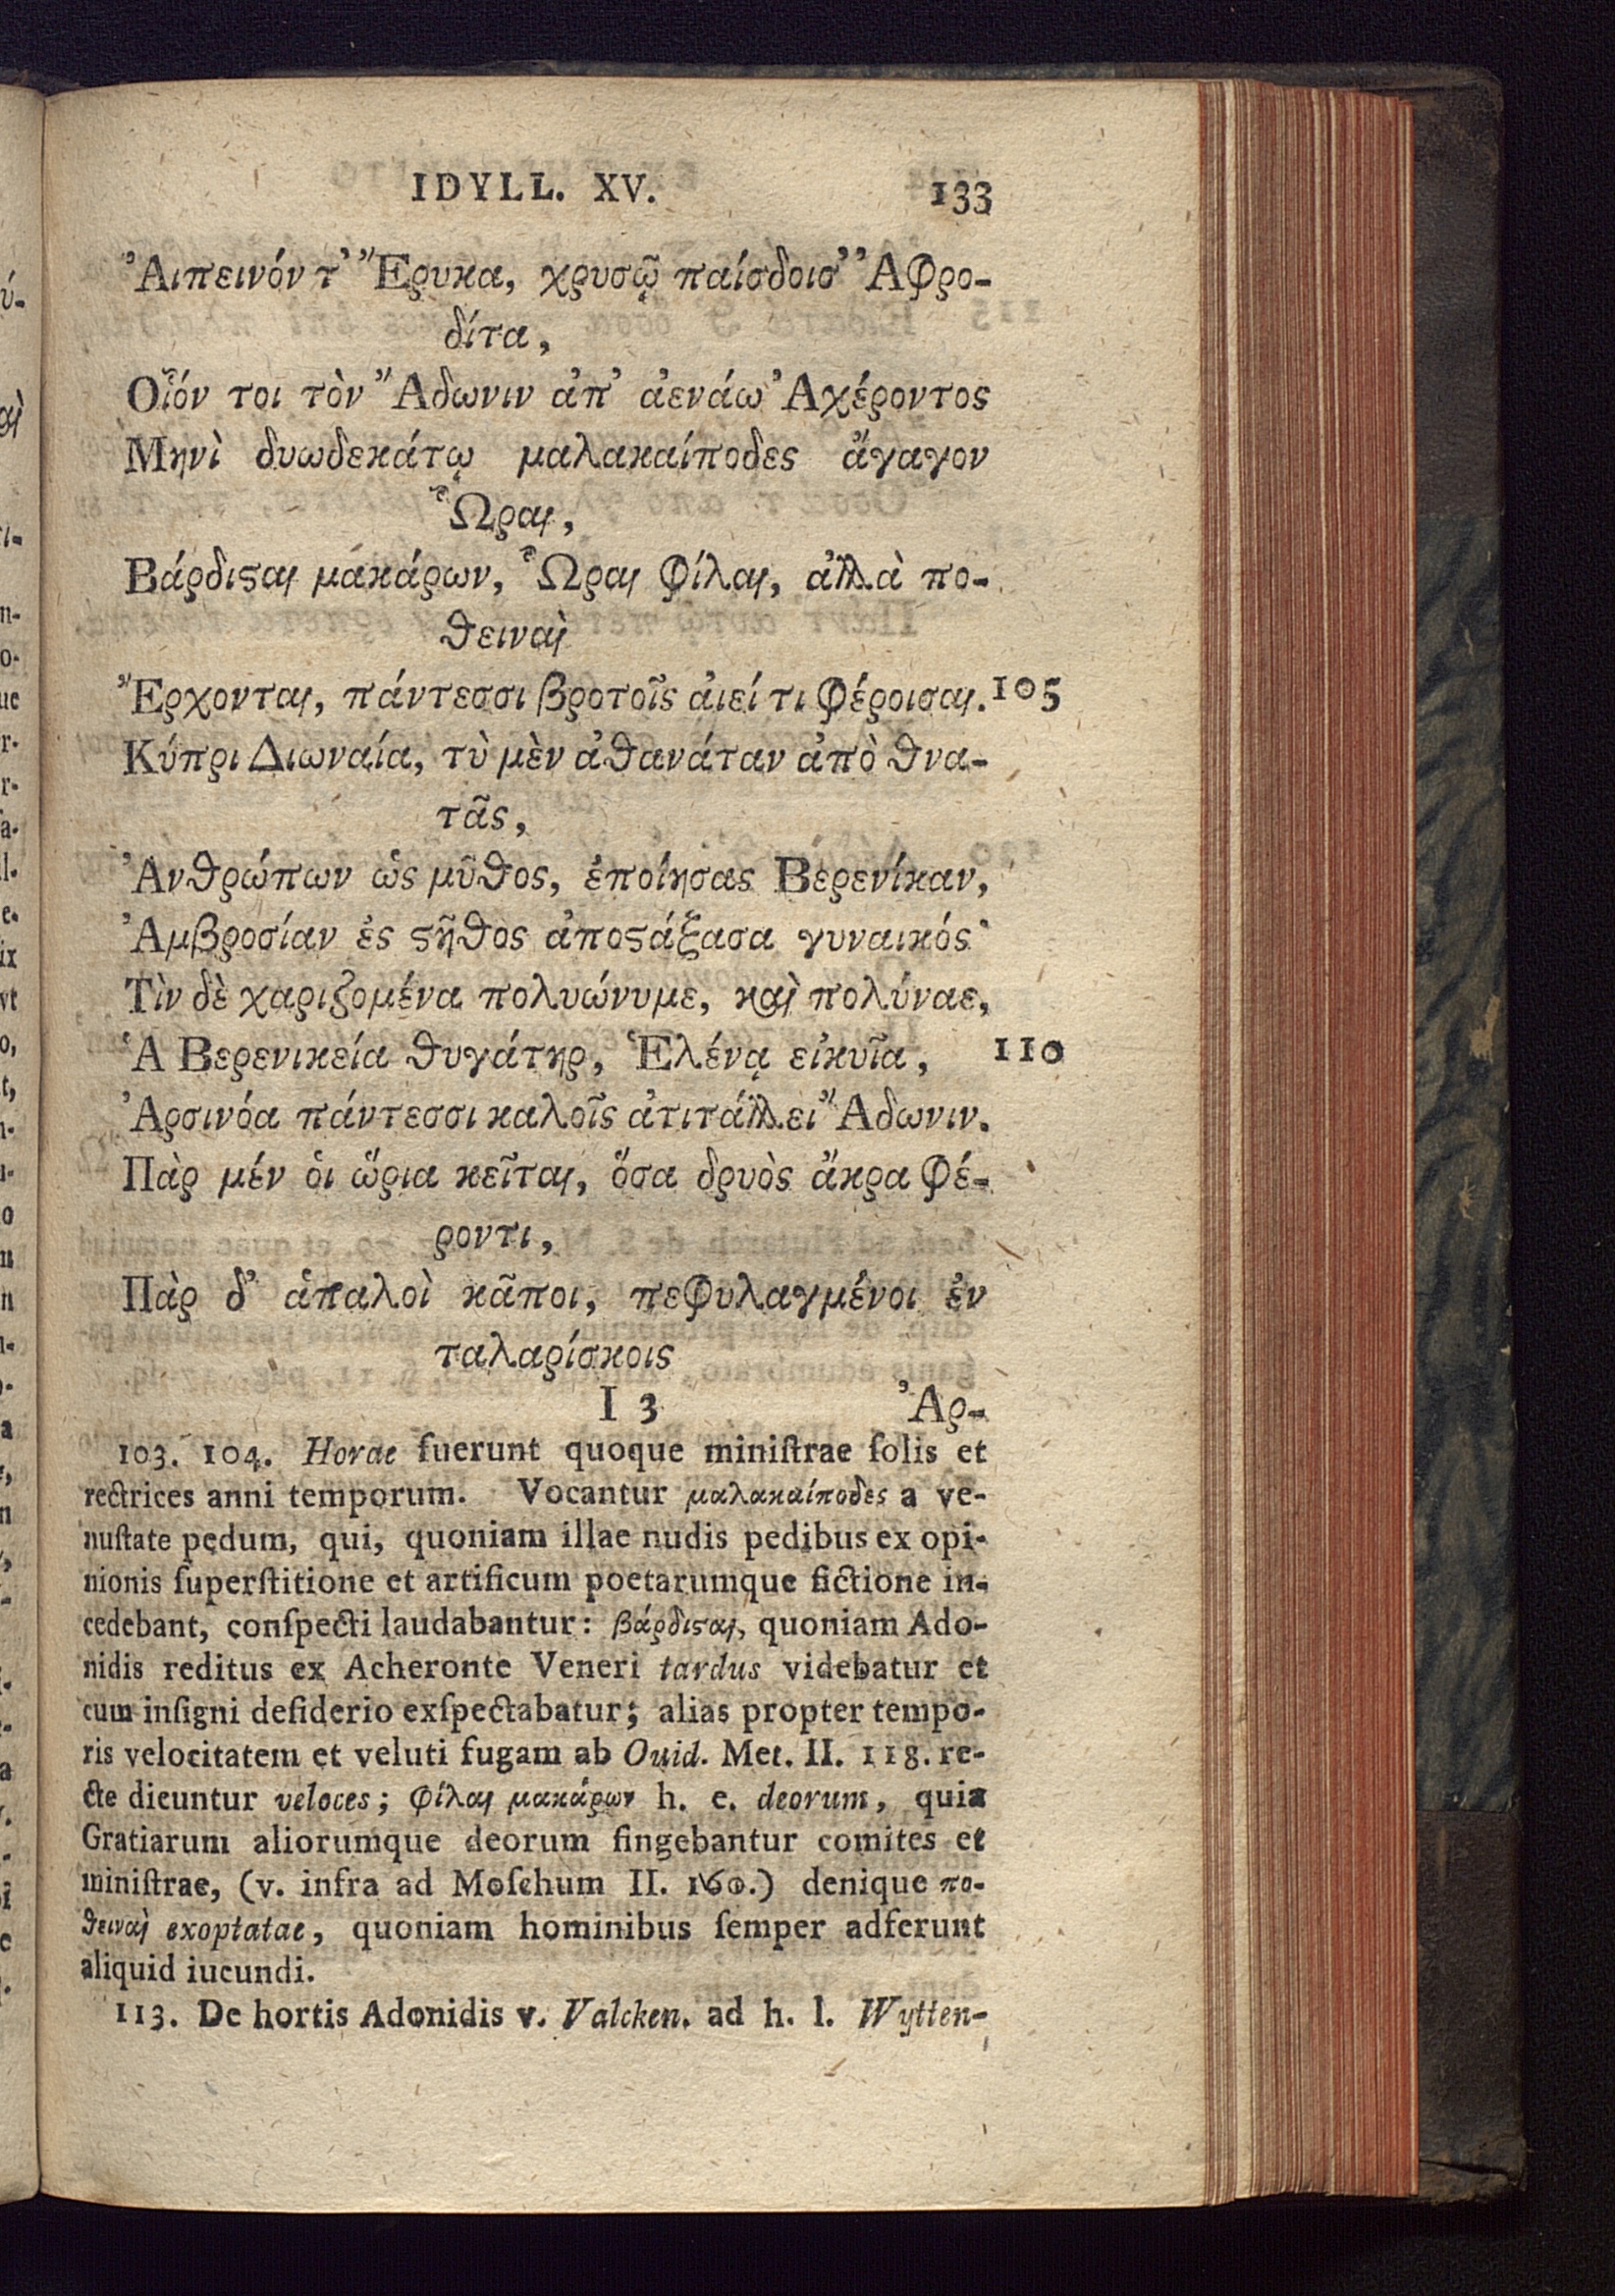 IDYLL. XV. 133
Ἀιπεινόν τ' Ἔρυκα, χρυσῷ παίσδοισ' Ἀφρο-
δίτα,
Οἷόν τοι τὸν Ἄδωνιν ἀπ' ἀενάω Ἀχέροντος
Μηνὶ δυωδεκάτῳ μαλακαίποδες ἄγαγον
Ὧραι,
Βάρδιςαι μακάρων, Ὧραι φίλαι, ἀλλὰ πο-
θειναὶ
Ἔρχονται, πάντεσσι βροτοῖς ἀιεί τι φέροισαι. 105
Κύπρι Διωναία, τὺ μὲν ἀθανάταν ἀπὸ θνα-
τᾶς,
Ἀνθρώπων ὡς μῦθος, ἐποίησας Βερενίκαν,
Ἀμβροσίαν ἐς ςῆθος ἀποςάξασα γυναικός·
Τὶν δὲ χαριζομένα πολυώνυμε, καὶ πολύναε,
Ἁ Βερενικεία θυγάτηρ, Ἑλένᾳ εἰκυῖα, 110
Ἀρσινόα πάντεσσι καλοῖς ἀτιτάλλει Ἄδωνιν.
Πὰρ μέν ὁι ὥρια κεῖται, ὅσα δρυὸς ἄκρα φέ-
ροντι,
Πὰρ δ' ἁπαλοὶ κᾶποι, πεφυλαγμένοι ἐν
ταλαρίσκοις
I 3 Ἀρ-
103. 104. Horae fuerunt quoque miniſtrae ſolis et
rectrices anni temporum. Vocantur μαλακαίποδες a ve-
nuſtate pedum, qui, quoniam illae nudis pedibus ex opi-
nionis ſuperſtitione et artificum poetarumque fictione in-
cedebant, conſpecti laudabantur: βάρδιςαι, quoniam Ado-
nidis reditus ex Acheronte Veneri tardus videbatur et
cum inſigni deſiderio exſpectabatur; alias propter tempo-
ris velocitatem et veluti fugam ab Ouid. Met. II. 118. re-
cte dicuntur veloces; φίλαι μακάρων h. e. deorum, quia
Gratiarum aliorumque deorum fingebantur comites et
miniſtrae, (v. infra ad Moſchum II. 160.) denique πο-
θειναὶ exoptatae, quoniam hominibus ſemper adferunt
aliquid iucundi.
113. De hortis Adonidis v. Valcken. ad h. l. Wytten-